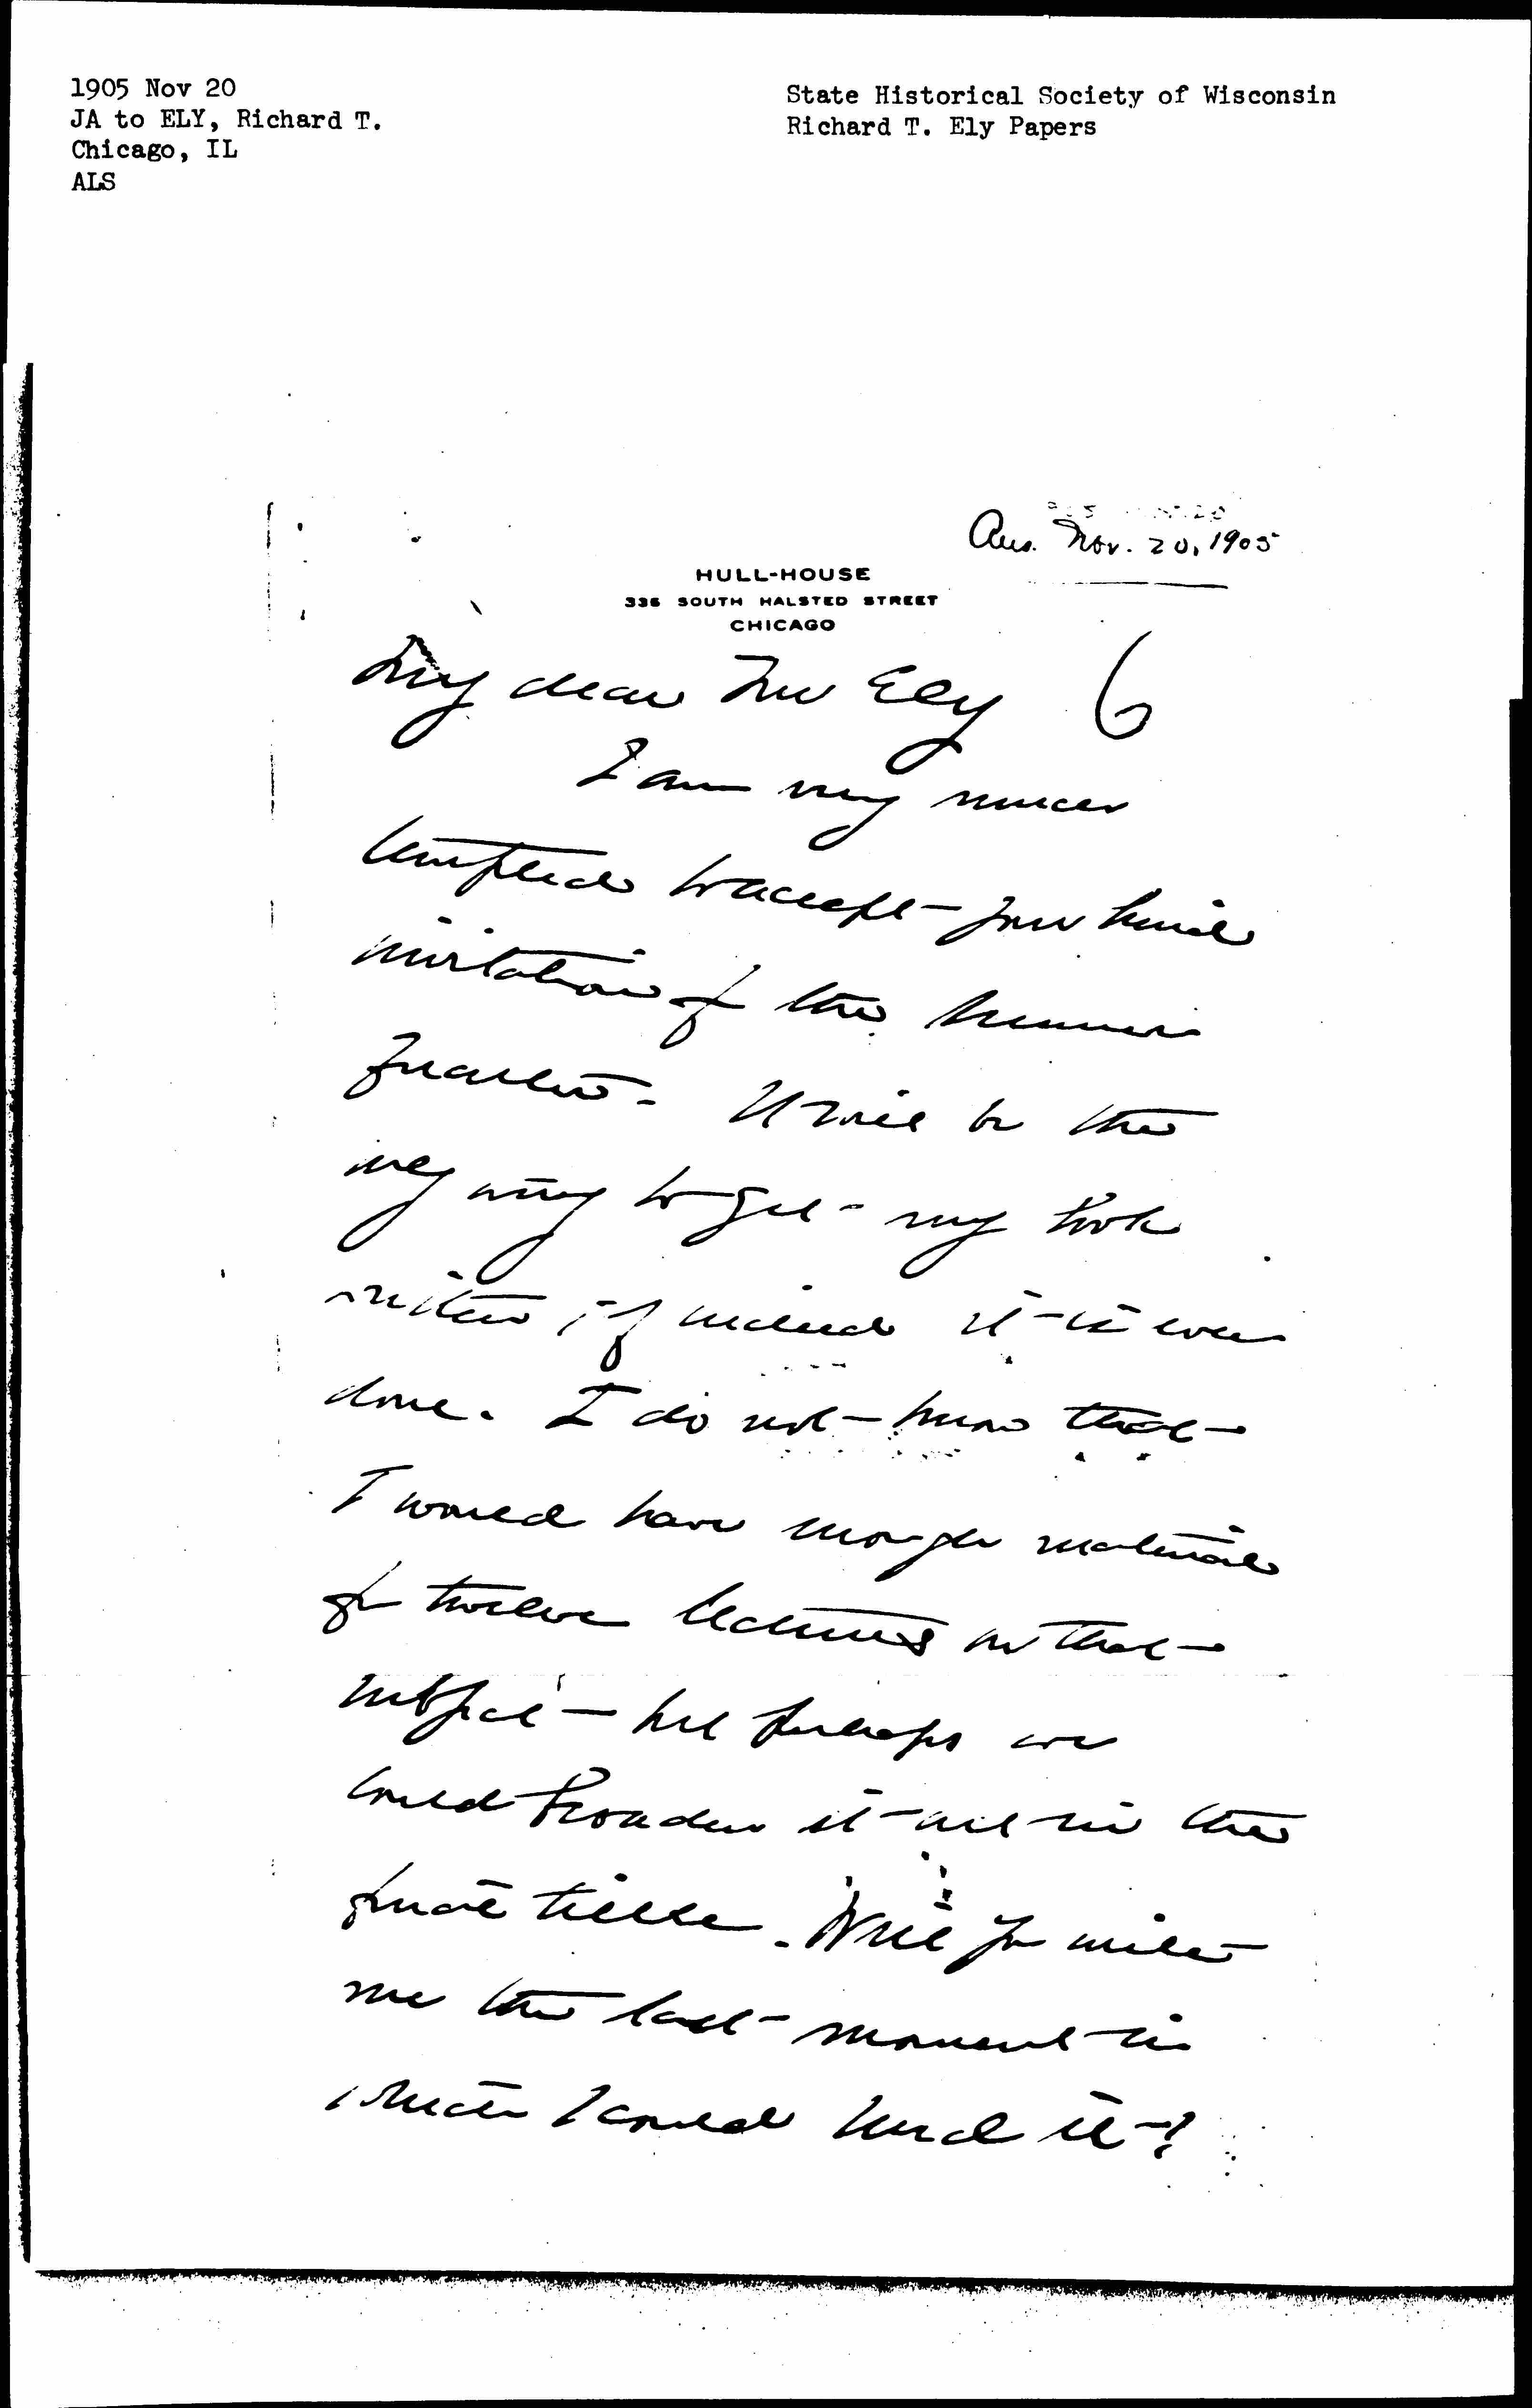 1905 Nov 20
JA to ELY, Richard T.
Chicago, IL
ALS
State Historical Society of Wisconsin
Richard T. Ely Papers
Ans. Nov. 20, 1905
HULL-HOUSE
335 SOUTH HALSTED STREET
CHICAGO
My dear Mr Ely
6
I am very much
tempted to accept your kind
invitation for the summer
quarter. It will be the
only way to get my book
written if indeed it is ever
done. I do not know that
I would have enough material
for twelve lectures on that
subject but perhaps we
could broaden it out in the
title. Will you write
me the last moment in
which I could send it?